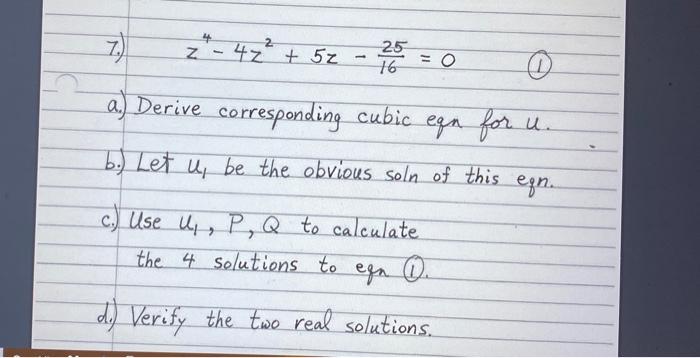 7.) z⁴ - 4z² + 5z - 25/16 = 0 ①
a.) Derive corresponding cubic eqn for u.
b.) Let u₁ be the obvious soln of this eqn.
c.) Use u₁, P, Q to calculate
the 4 solutions to eqn ①.
d.) Verify the two real solutions.